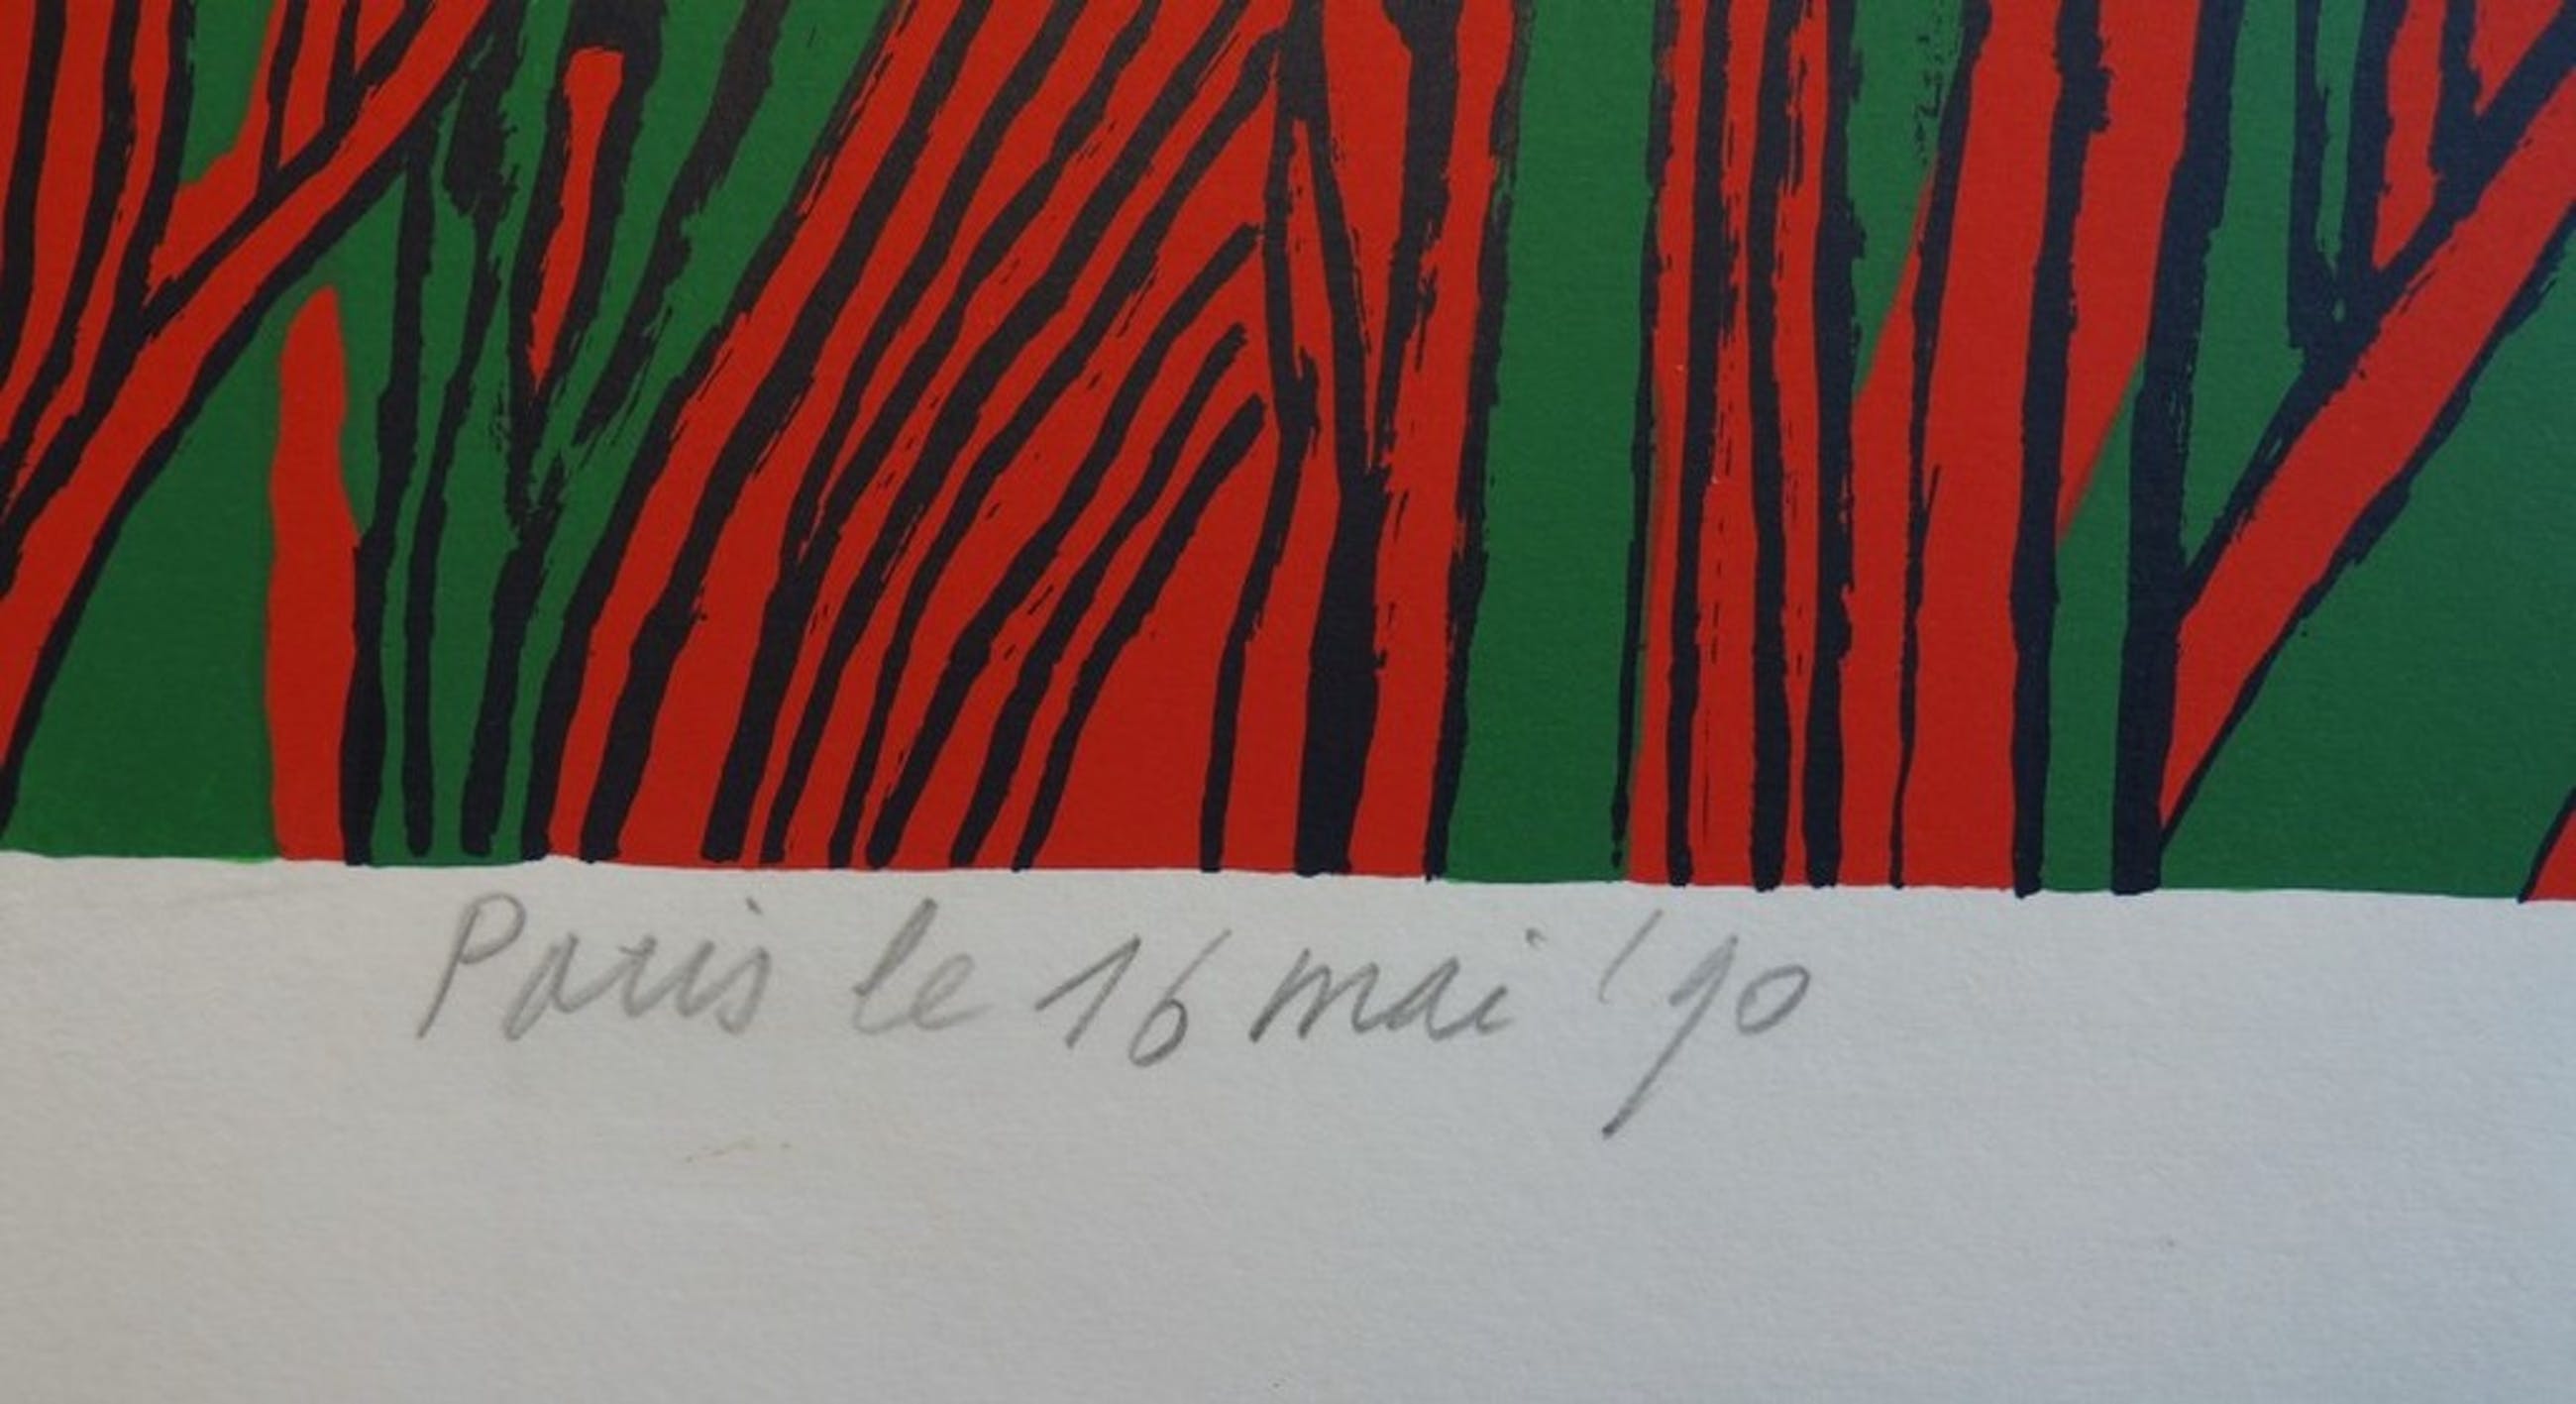 Paris le 16 mai '90